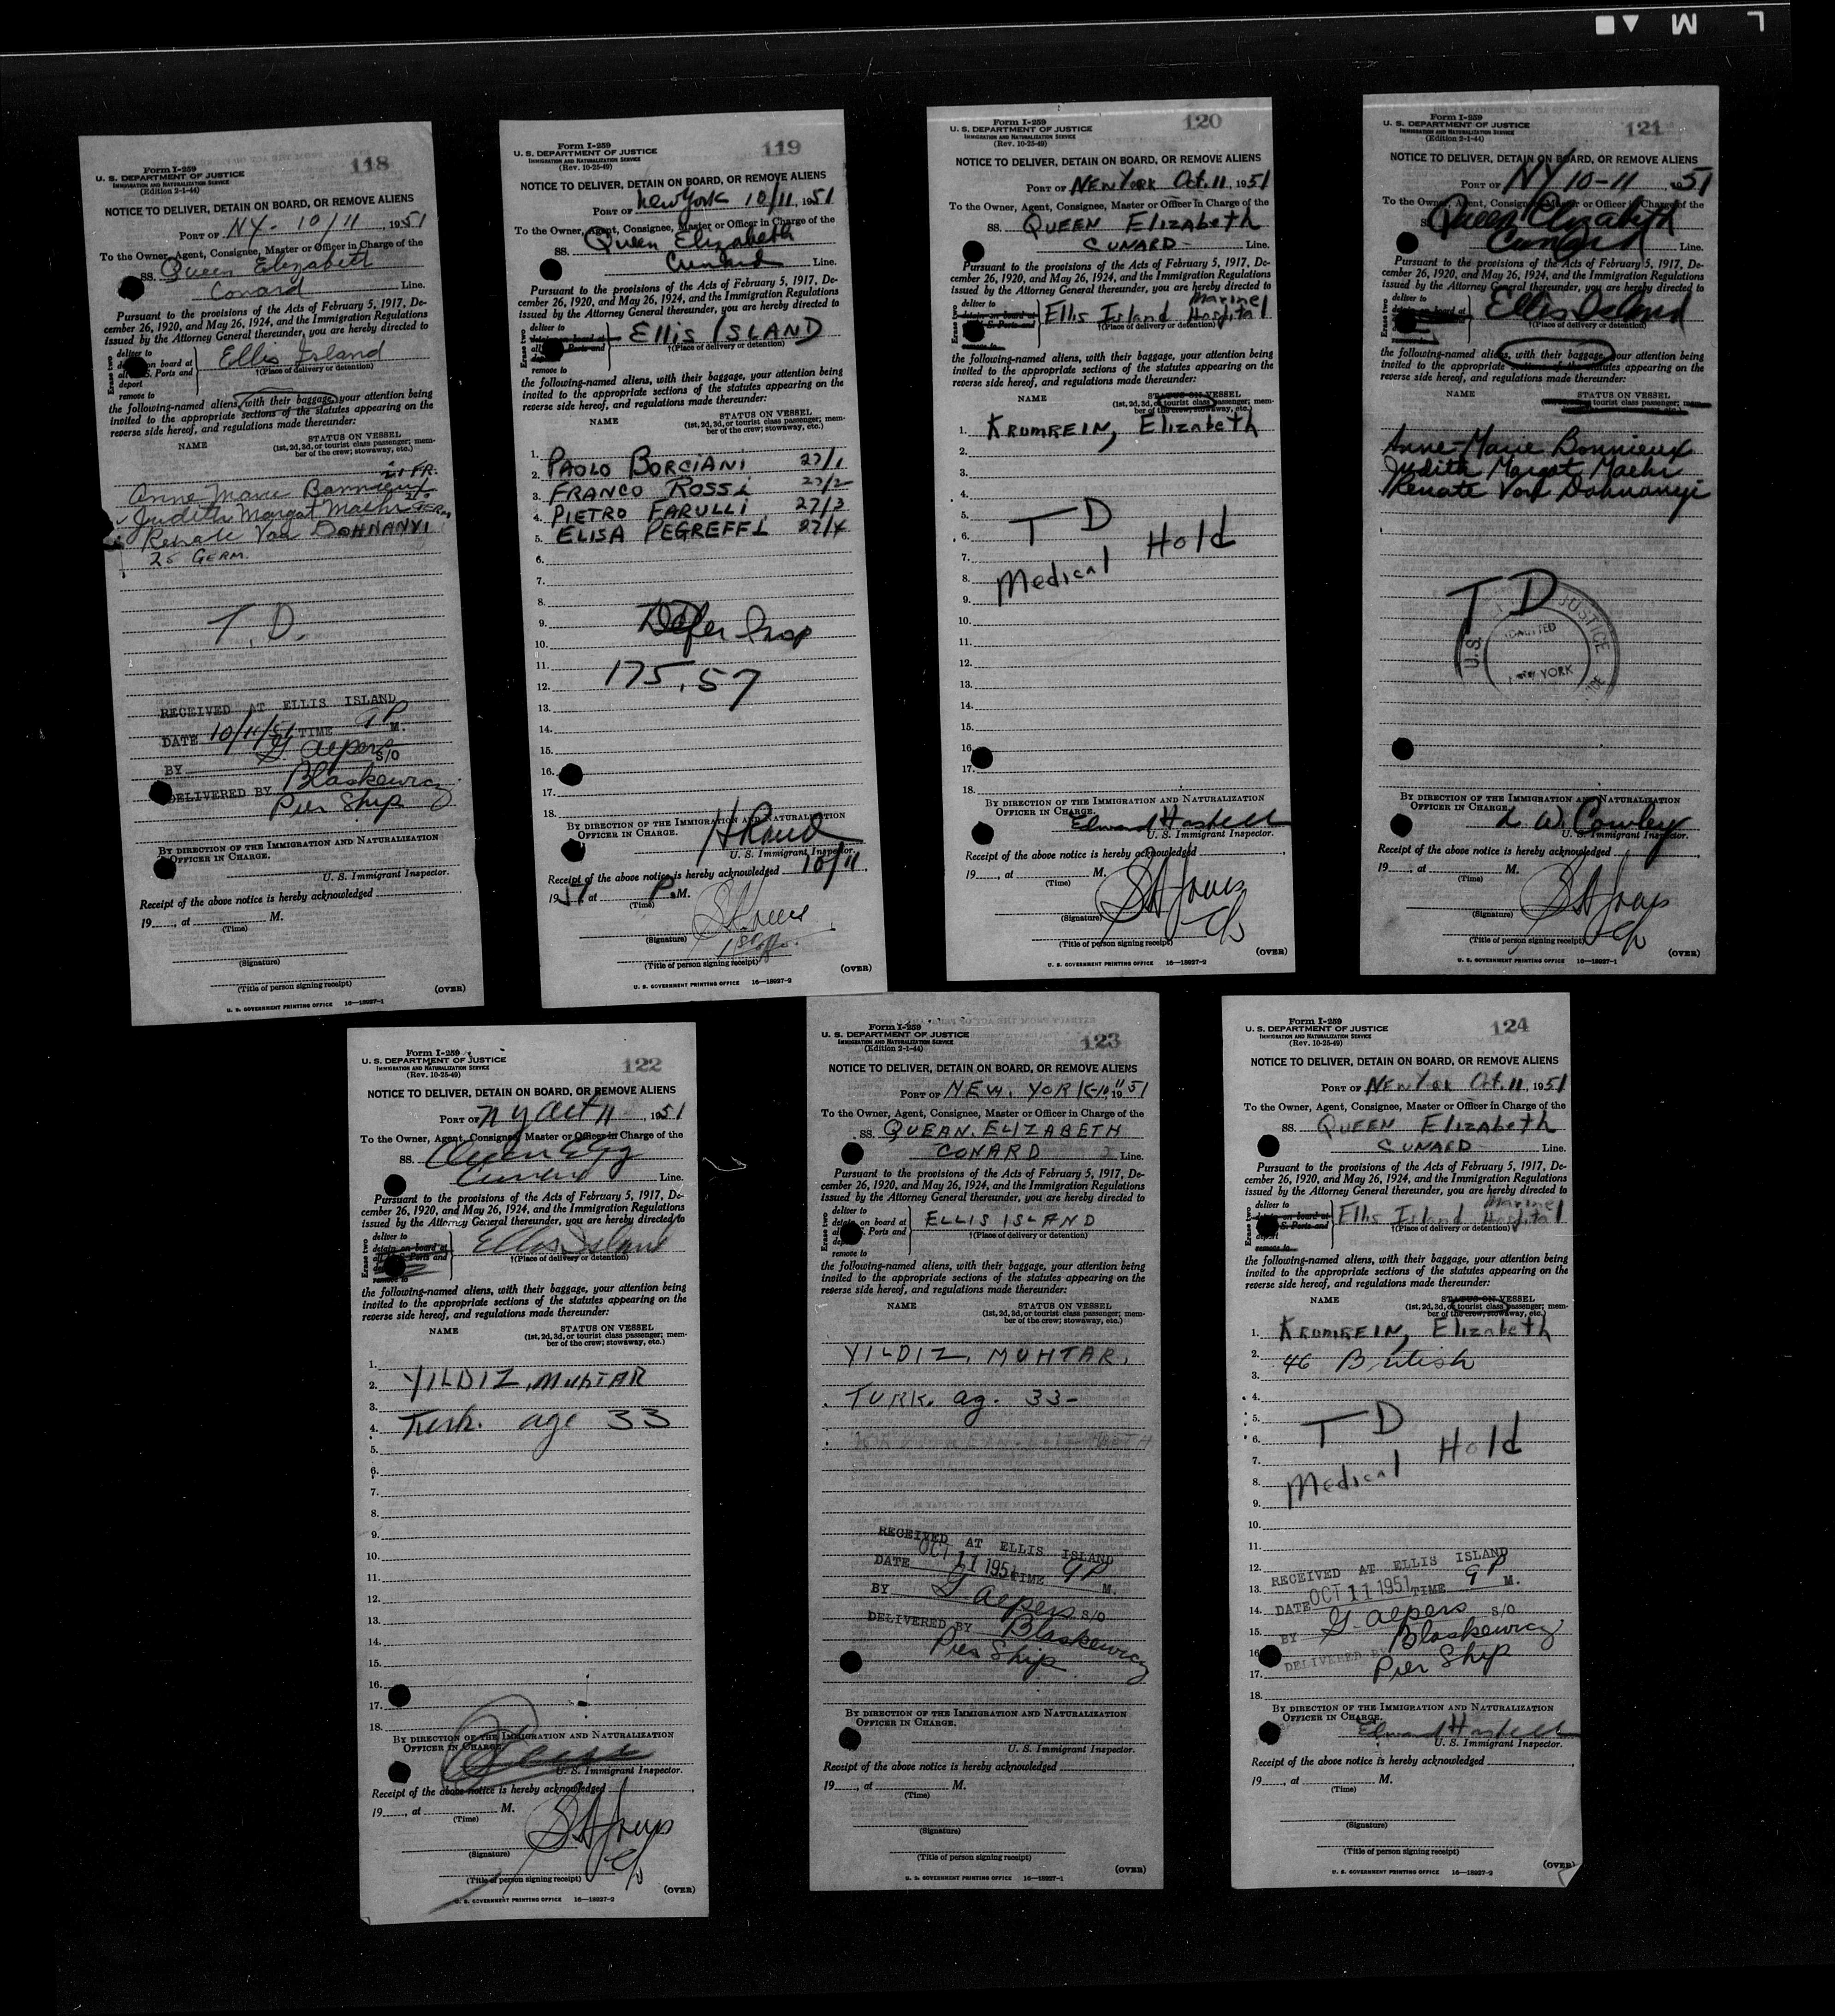 L M
118
Form I-259
U. S. DEPARTMENT OF JUSTICE
IMMIGRATION AND NATURALIZATION SERVICE
(Edition 2-1-44)
NOTICE TO DELIVER, DETAIN ON BOARD, OR REMOVE ALIENS
PORT OF NY- 10/11, 1951
To the Owner, Agent, Consignee, Master or Officer in Charge of the
SS. Queen Elizabeth
Conard Line.
Pursuant to the provisions of the Acts of February 5, 1917, De-
cember 26, 1920, and May 26, 1924, and the Immigration Regulations
issued by the Attorney General thereunder, you are hereby directed to
Erase two
deliver to
on board at
S. Ports and
deport
remove to
Ellis Island
†(Place of delivery or detention)
the following-named aliens, with their baggage, your attention being
invited to the appropriate sections of the statutes appearing on the
reverse side hereof, and regulations made thereunder:
NAME STATUS ON VESSEL
(1st, 2d, 3d, or tourist class passenger; mem-
ber of the crew; stowaway, etc.)
21 FR.
Anne Marie Bonnieux
Judith Margot Maehr GER.
Renate Von DOHNANYI
25 GERM.
T. D.
RECEIVED AT ELLIS ISLAND
DATE 10/11/51 TIME 9 P M.
BY G. Alpers S/O
DELIVERED BY Blaskewicz
Pier Ship
BY DIRECTION OF THE IMMIGRATION AND NATURALIZATION
OFFICER IN CHARGE.
U. S. Immigrant Inspector.
Receipt of the above notice is hereby acknowledged
19, at M.
(Time)
(Signature)
(Title of person signing receipt)
(OVER)
U. S. GOVERNMENT PRINTING OFFICE 16—18927-1
119
Form I-259
U. S. DEPARTMENT OF JUSTICE
IMMIGRATION AND NATURALIZATION SERVICE
(Rev. 10-25-49)
NOTICE TO DELIVER, DETAIN ON BOARD, OR REMOVE ALIENS
PORT OF New York 10/11, 1951
To the Owner, Agent, Consignee, Master or Officer in Charge of the
SS. Queen Elizabeth
Cunard Line.
Pursuant to the provisions of the Acts of February 5, 1917, De-
cember 26, 1920, and May 26, 1924, and the Immigration Regulations
issued by the Attorney General thereunder, you are hereby directed to
Erase two
deliver to
detain on board at
Ports and
remove to
ELLIS ISLAND
†(Place of delivery or detention)
the following-named aliens, with their baggage, your attention being
invited to the appropriate sections of the statutes appearing on the
reverse side hereof, and regulations made thereunder:
NAME STATUS ON VESSEL
(1st, 2d, 3d, or tourist class passenger; mem-
ber of the crew; stowaway, etc.)
1.
2. PAOLO BORCIANI 27/1
3. FRANCO ROSSI 27/2
4. PIETRO FARULLI 27/3
5. ELISA PEGREFFI 27/4
6.
7.
8.
9. Defer Insp
10.
11.
12. 175.57
13.
14.
15.
16.
17.
18.
BY DIRECTION OF THE IMMIGRATION AND NATURALIZATION
OFFICER IN CHARGE.
U. S. Immigrant Inspector.
Receipt of the above notice is hereby acknowledged 10/11
1951 at P. M.
(Time)
(Signature)
(Title of person signing receipt)
(OVER)
U. S. GOVERNMENT PRINTING OFFICE 16—18927-2
120
Form I-259
U. S. DEPARTMENT OF JUSTICE
IMMIGRATION AND NATURALIZATION SERVICE
(Rev. 10-25-49)
NOTICE TO DELIVER, DETAIN ON BOARD, OR REMOVE ALIENS
PORT OF NEW YORK Oct. 11, 1951
To the Owner, Agent, Consignee, Master or Officer in Charge of the
SS. QUEEN Elizabeth
CUNARD- Line.
Pursuant to the provisions of the Acts of February 5, 1917, De-
cember 26, 1920, and May 26, 1924, and the Immigration Regulations
issued by the Attorney General thereunder, you are hereby directed to
Erase two
deliver to
detain on board at
S. Ports and
remove to
Ellis Island Marine Hospital
†(Place of delivery or detention)
the following-named aliens, with their baggage, your attention being
invited to the appropriate sections of the statutes appearing on the
reverse side hereof, and regulations made thereunder:
NAME STATUS ON VESSEL
(1st, 2d, 3d, or tourist class passenger; mem-
ber of the crew; stowaway, etc.)
1. KRUMREIN, Elizabeth
2.
3.
4.
5. T D
6. Hold
7.
8. Medical
9.
10.
11.
12.
13.
14.
15.
16.
17.
18.
BY DIRECTION OF THE IMMIGRATION AND NATURALIZATION
OFFICER IN CHARGE.
Edward Haskell
U. S. Immigrant Inspector.
Receipt of the above notice is hereby acknowledged
19, at M.
(Time)
(Signature)
(Title of person signing receipt)
(OVER)
U. S. GOVERNMENT PRINTING OFFICE 16—18927-2
121
Form I-259
U. S. DEPARTMENT OF JUSTICE
IMMIGRATION AND NATURALIZATION SERVICE
(Edition 2-1-44)
NOTICE TO DELIVER, DETAIN ON BOARD, OR REMOVE ALIENS
PORT OF NY 10-11, 1951
To the Owner, Agent, Consignee, Master or Officer in Charge of the
Queen Elizabeth
Cunard Line.
Pursuant to the provisions of the Acts of February 5, 1917, De-
cember 26, 1920, and May 26, 1924, and the Immigration Regulations
issued by the Attorney General thereunder, you are hereby directed to
Erase two
deliver to
Ellis Island
†(Place of delivery or detention)
the following-named aliens, with their baggage, your attention being
invited to the appropriate sections of the statutes appearing on the
reverse side hereof, and regulations made thereunder:
NAME STATUS ON VESSEL
tourist class passenger;
Anne-Marie Bonnieux
Judith Margot Maehr
Renate Von Dohnanyi
T D
U.S. JUSTICE
ADMITTED
NEW YORK
BY DIRECTION OF THE IMMIGRATION AND NATURALIZATION
OFFICER IN CHARGE.
L. W. Cowley
U. S. Immigrant Inspector.
Receipt of the above notice is hereby acknowledged
19, at M.
(Time)
(Signature)
(Title of person signing receipt)
(OVER)
U. S. GOVERNMENT PRINTING OFFICE 16—18927-1
122
Form I-259
U. S. DEPARTMENT OF JUSTICE
IMMIGRATION AND NATURALIZATION SERVICE
(Rev. 10-25-49)
NOTICE TO DELIVER, DETAIN ON BOARD, OR REMOVE ALIENS
PORT OF N Y Oct 11, 1951
To the Owner, Agent, Consignee, Master or Officer in Charge of the
SS. Queen Eliz
Cunard Line.
Pursuant to the provisions of the Acts of February 5, 1917, De-
cember 26, 1920, and May 26, 1924, and the Immigration Regulations
issued by the Attorney General thereunder, you are hereby directed to
Erase two
deliver to
detain on board at
Ports and
remove to
Ellis Island
†(Place of delivery or detention)
the following-named aliens, with their baggage, your attention being
invited to the appropriate sections of the statutes appearing on the
reverse side hereof, and regulations made thereunder:
NAME STATUS ON VESSEL
(1st, 2d, 3d, or tourist class passenger; mem-
ber of the crew; stowaway, etc.)
1.
2. YILDIZ, MUHTAR
3.
4. Turk. age 33
5.
6.
7.
8.
9.
10.
11.
12.
13.
14.
15.
16.
17.
18.
BY DIRECTION OF THE IMMIGRATION AND NATURALIZATION
OFFICER IN CHARGE.
U. S. Immigrant Inspector.
Receipt of the above notice is hereby acknowledged
19, at M.
(Time)
(Signature)
(Title of person signing receipt)
(OVER)
U. S. GOVERNMENT PRINTING OFFICE 16—18927-2
123
Form I-259
U. S. DEPARTMENT OF JUSTICE
IMMIGRATION AND NATURALIZATION SERVICE
(Edition 2-1-44)
NOTICE TO DELIVER, DETAIN ON BOARD, OR REMOVE ALIENS
PORT OF NEW. YORK 10/11 1951
To the Owner, Agent, Consignee, Master or Officer in Charge of the
SS. QUEAN. ELIZABETH
CONARD Line.
Pursuant to the provisions of the Acts of February 5, 1917, De-
cember 26, 1920, and May 26, 1924, and the Immigration Regulations
issued by the Attorney General thereunder, you are hereby directed to
Erase two
deliver to
detain on board at
S. Ports and
remove to
ELLIS ISLAND
†(Place of delivery or detention)
the following-named aliens, with their baggage, your attention being
invited to the appropriate sections of the statutes appearing on the
reverse side hereof, and regulations made thereunder:
NAME STATUS ON VESSEL
(1st, 2d, 3d, or tourist class passenger; mem-
ber of the crew; stowaway, etc.)
YILDIZ, MUHTAR,
TURK. ag. 33-
RECEIVED AT ELLIS ISLAND
DATE OCT 11 1951 TIME 9 P M.
BY G Alpers S/O
DELIVERED BY Blaskewicz
Pier Ship
BY DIRECTION OF THE IMMIGRATION AND NATURALIZATION
OFFICER IN CHARGE.
U. S. Immigrant Inspector.
Receipt of the above notice is hereby acknowledged
19, at M.
(Time)
(Signature)
(Title of person signing receipt)
(OVER)
U. S. GOVERNMENT PRINTING OFFICE 16—18927-1
124
Form I-259
U. S. DEPARTMENT OF JUSTICE
IMMIGRATION AND NATURALIZATION SERVICE
(Rev. 10-25-49)
NOTICE TO DELIVER, DETAIN ON BOARD, OR REMOVE ALIENS
PORT OF New York Oct. 11, 1951
To the Owner, Agent, Consignee, Master or Officer in Charge of the
SS. QUEEN Elizabeth
CUNARD- Line.
Pursuant to the provisions of the Acts of February 5, 1917, De-
cember 26, 1920, and May 26, 1924, and the Immigration Regulations
issued by the Attorney General thereunder, you are hereby directed to
Erase two
deliver to
detain on board at
S. Ports and
deport
remove to
Ellis Island Marine Hospital
†(Place of delivery or detention)
the following-named aliens, with their baggage, your attention being
invited to the appropriate sections of the statutes appearing on the
reverse side hereof, and regulations made thereunder:
NAME STATUS ON VESSEL
(1st, 2d, 3d, or tourist class passenger; mem-
ber of the crew; stowaway, etc.)
1. KRUMREIN, Elizabeth
2. 46 British
3.
4.
5. T D
6. Hold
7.
8. Medical
9.
10.
11.
12.
13. RECEIVED AT ELLIS ISLAND
14. DATE OCT 11 1951 TIME 9 P M.
15. BY G. Alpers S/O
16. DELIVERED BY Blaskewicz
17. Pier Ship
18.
BY DIRECTION OF THE IMMIGRATION AND NATURALIZATION
OFFICER IN CHARGE.
Edward Haskell
U. S. Immigrant Inspector.
Receipt of the above notice is hereby acknowledged
19, at M.
(Time)
(Signature)
(Title of person signing receipt)
(OVER)
U. S. GOVERNMENT PRINTING OFFICE 16—18927-2